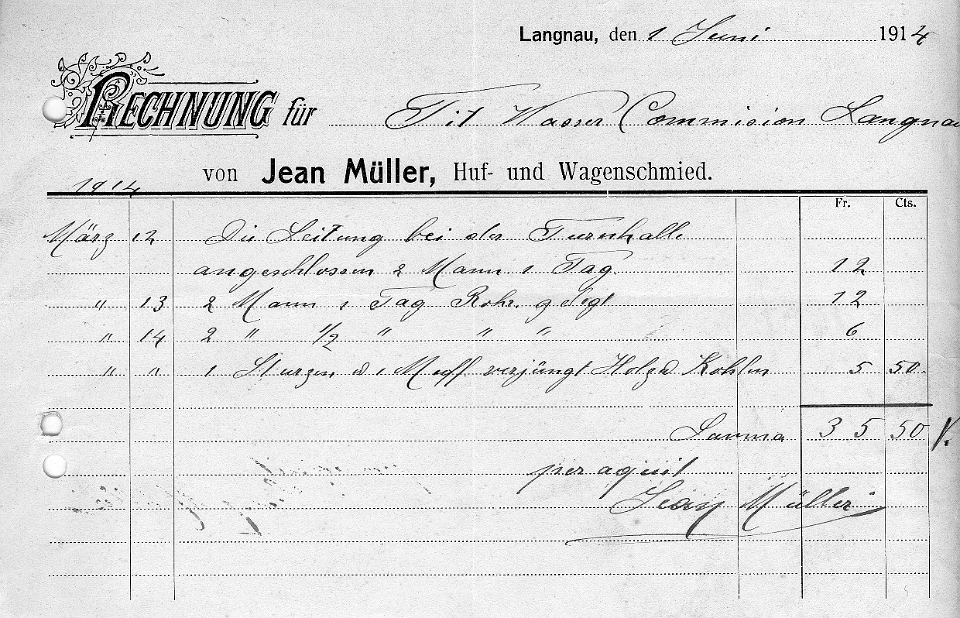 Langnau, den 1 Juni 1914
RECHNUNG für Tit Wasser Commision Langnau
von Jean Müller, Huf- und Wagenschmied.
1914
Fr. Cts.
März 12 Die Leitung bei der Turnhalle
angeschlossen 2 Mann 1 Tag. 12
" 13 2 Mann 1 Tag Rohr gelegt 12
" 14 2 " 1/2 " " " 6
" " 1 Sturzen u 1 Muff verjüngt Holz u Kohlen 5 50
Summa 35 50
per aquit
Jean Müller